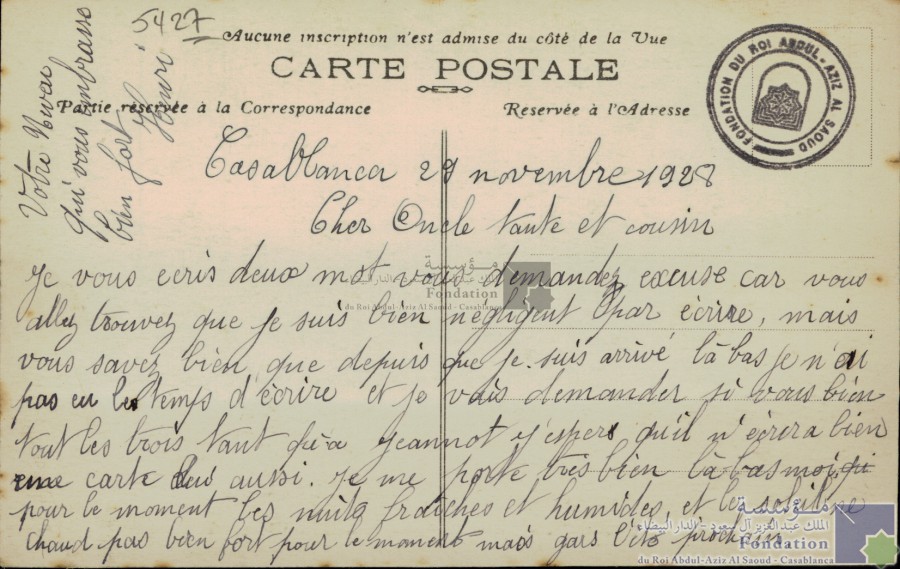 5427
Aucune inscription n'est admise du côté de la Vue
CARTE POSTALE
Partie réservée à la Correspondance
Reservée à l'Adresse
FONDATION DU ROI ABDUL-AZIZ AL SAOUD
Casablanca 29 novembre 1928
Cher Oncle tante et cousin
Je vous ecris deux mot vous demandez excuse car vous
allez trouvez que je suis bien négligent par écrire, mais
vous savez bien que depuis que je suis arrivé là bas je n'ai
pas eu les temps d'écrire et je vais demander si vous bien
tout les trois tant qu'a Jeannot j'espers qu'il n'écrera bien
une carte lui aussi. Je me porte très bien là bas moi
pour le moment les nuits fraiches et humides, et le soleil ne
chaud pas bien fort pour le moment mais gars l'été prochain
Votre Nevau
qui vous embrasse
bien fort
Henri
مؤسسة
Fondation
du Roi Abdul-Aziz Al Saoud - Casablanca
مؤسسة
الملك عبد العزيز آل سعود - الدار البيضاء
Fondation
du Roi Abdul-Aziz Al Saoud - Casablanca